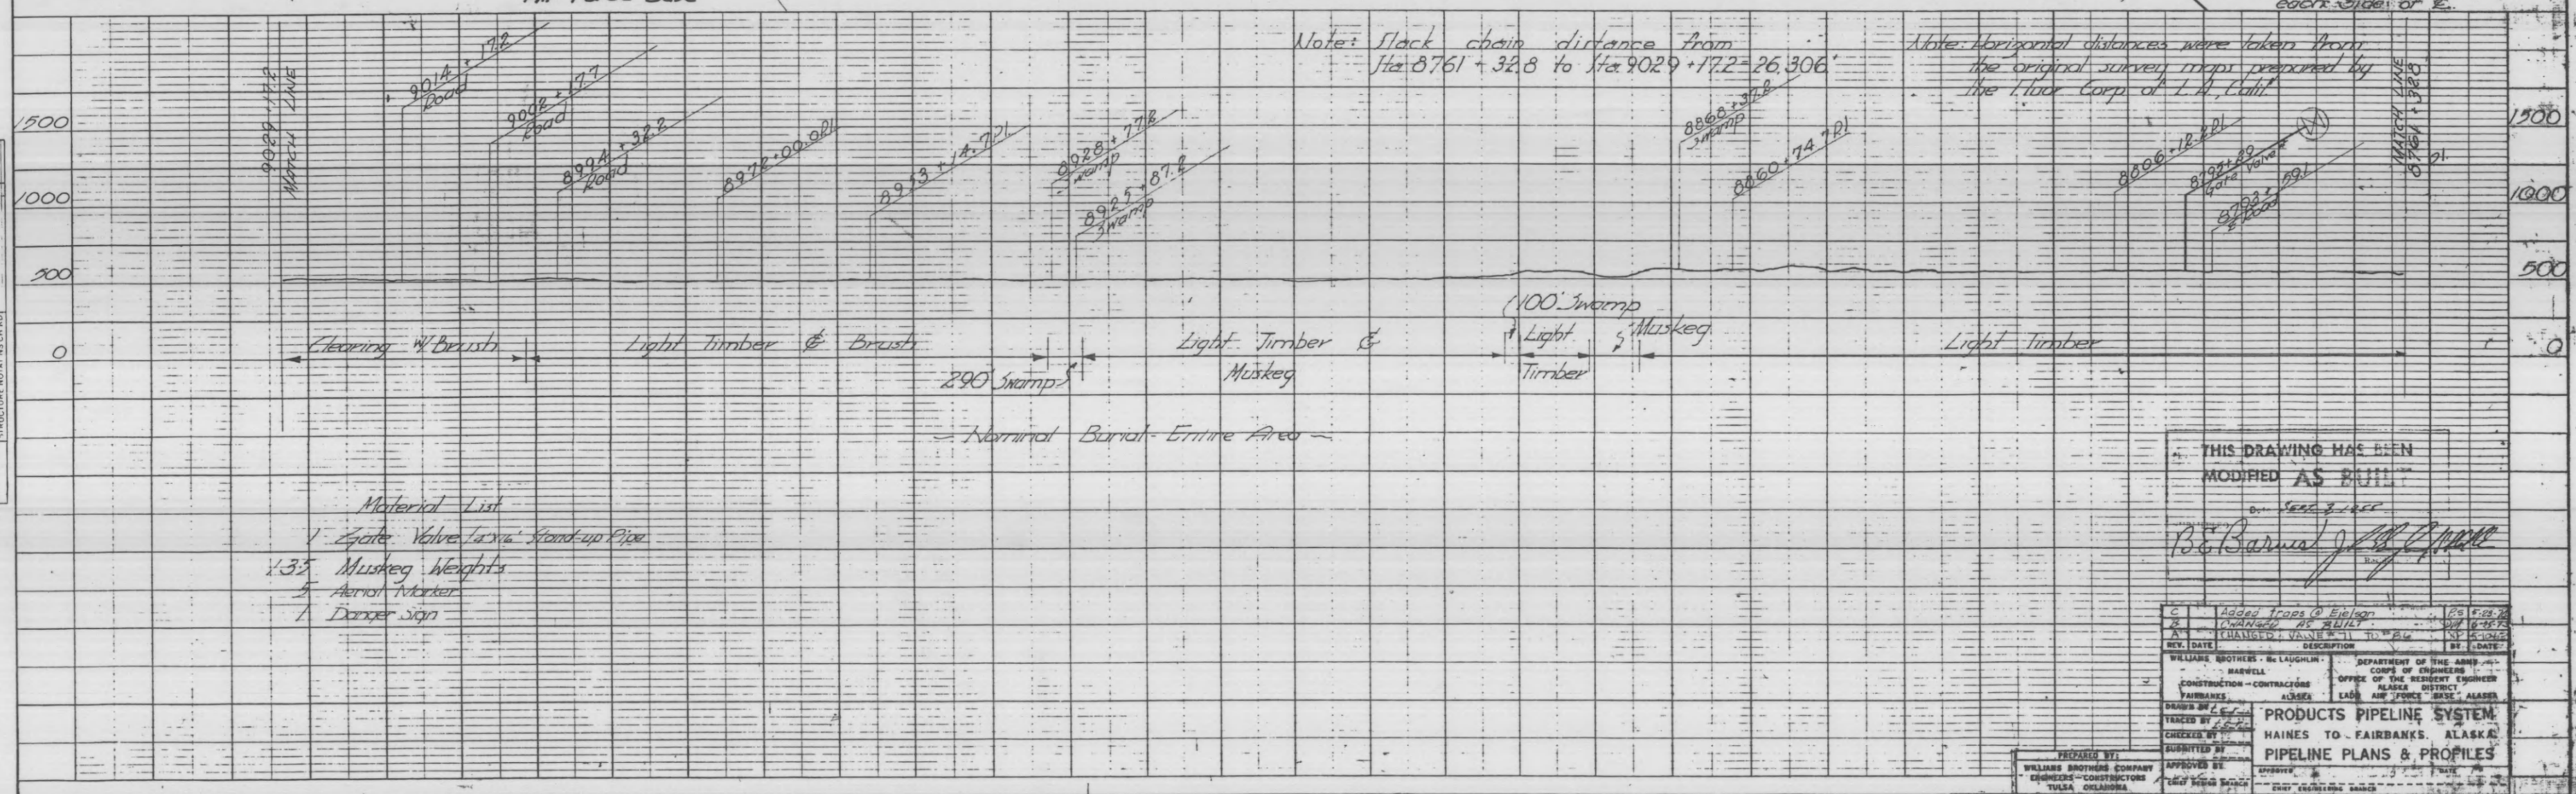 each side of ℄.
Note: Slack chain distance from
Sta 8761 + 32.8 to Sta. 9029 + 17.2 = 26,306'
Note: Horizontal distances were taken from
the original survey maps prepared by
the Fluor Corp of L.A. Calif.
9029 + 17.2
MATCH LINE
9014 + 17.2
Road
9002 + 17.7
Road
8994 + 32.2
Road
8972+00.0 P.I.
8953 + 14.7 P.I.
8928 + 77.2
Swamp
8925 + 87.2
Swamp
8868 + 37.2
Swamp
8860 + 74.7 P.I.
8806 + 12.2 P.I.
8795+20
Gate Valve
8793 + 59.1
℄ Road
MATCH LINE
8761 + 32.8
P.I.
1500
1000
500
0
1500
1000
500
0
Clearing W/ Brush
Light Timber & Brush
290' Swamp
Light Timber &
Muskeg
100' Swamp
Light
Timber
Muskeg
Light Timber
Nominal Burial - Entire Area
Material List
1 Gate Valve Stand-up Pipe
135 Muskeg Weights
5 Aerial Marker
1 Danger Sign
THIS DRAWING HAS BEEN
MODIFIED AS BUILT
SEPT 3, 1955
B E Barnes
C Added Traps @ Eielson
B CHANGED AS BUILT
A CHANGED VALVE #71 TO #86
REV. DATE DESCRIPTION BY DATE
WILLIAMS BROTHERS - McLAUGHLIN -
MARWELL
CONSTRUCTION - CONTRACTORS
FAIRBANKS ALASKA
DEPARTMENT OF THE ARMY
CORPS OF ENGINEERS
OFFICE OF THE RESIDENT ENGINEER
ALASKA DISTRICT
LADD AIR FORCE BASE ALASKA
DRAWN BY
TRACED BY
CHECKED BY
SUBMITTED BY
APPROVED BY
CHIEF DESIGN BRANCH
PRODUCTS PIPELINE SYSTEM
HAINES TO FAIRBANKS, ALASKA
PIPELINE PLANS & PROFILES
APPROVED DATE
CHIEF ENGINEERING BRANCH
PREPARED BY:
WILLIAMS BROTHERS COMPANY
ENGINEERS - CONSTRUCTORS
TULSA OKLAHOMA